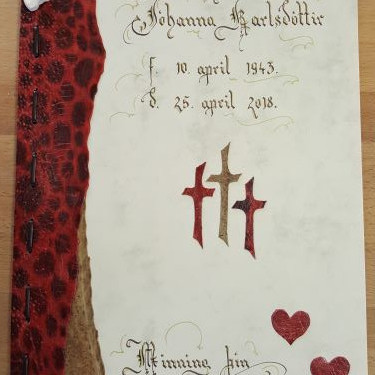 Jóhanna Karlsdóttir
f. 10. april 1943.
d. 25. april 2018.
Minning þin